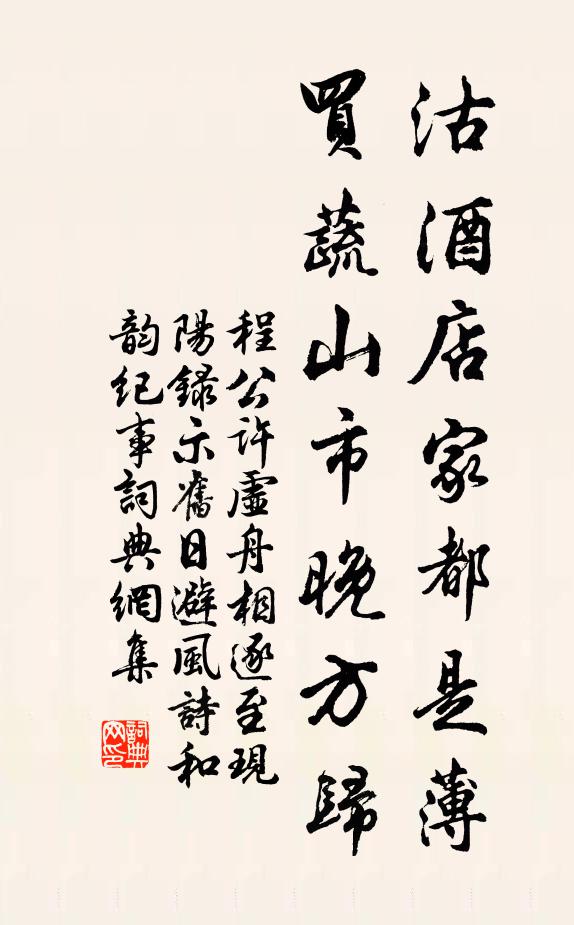 沽酒店家都是薄
買蔬山市晚方歸
程公許虛舟相逐至現
陽錄示舊日避風詩和
韵紀事詞典網集
詞典
网印